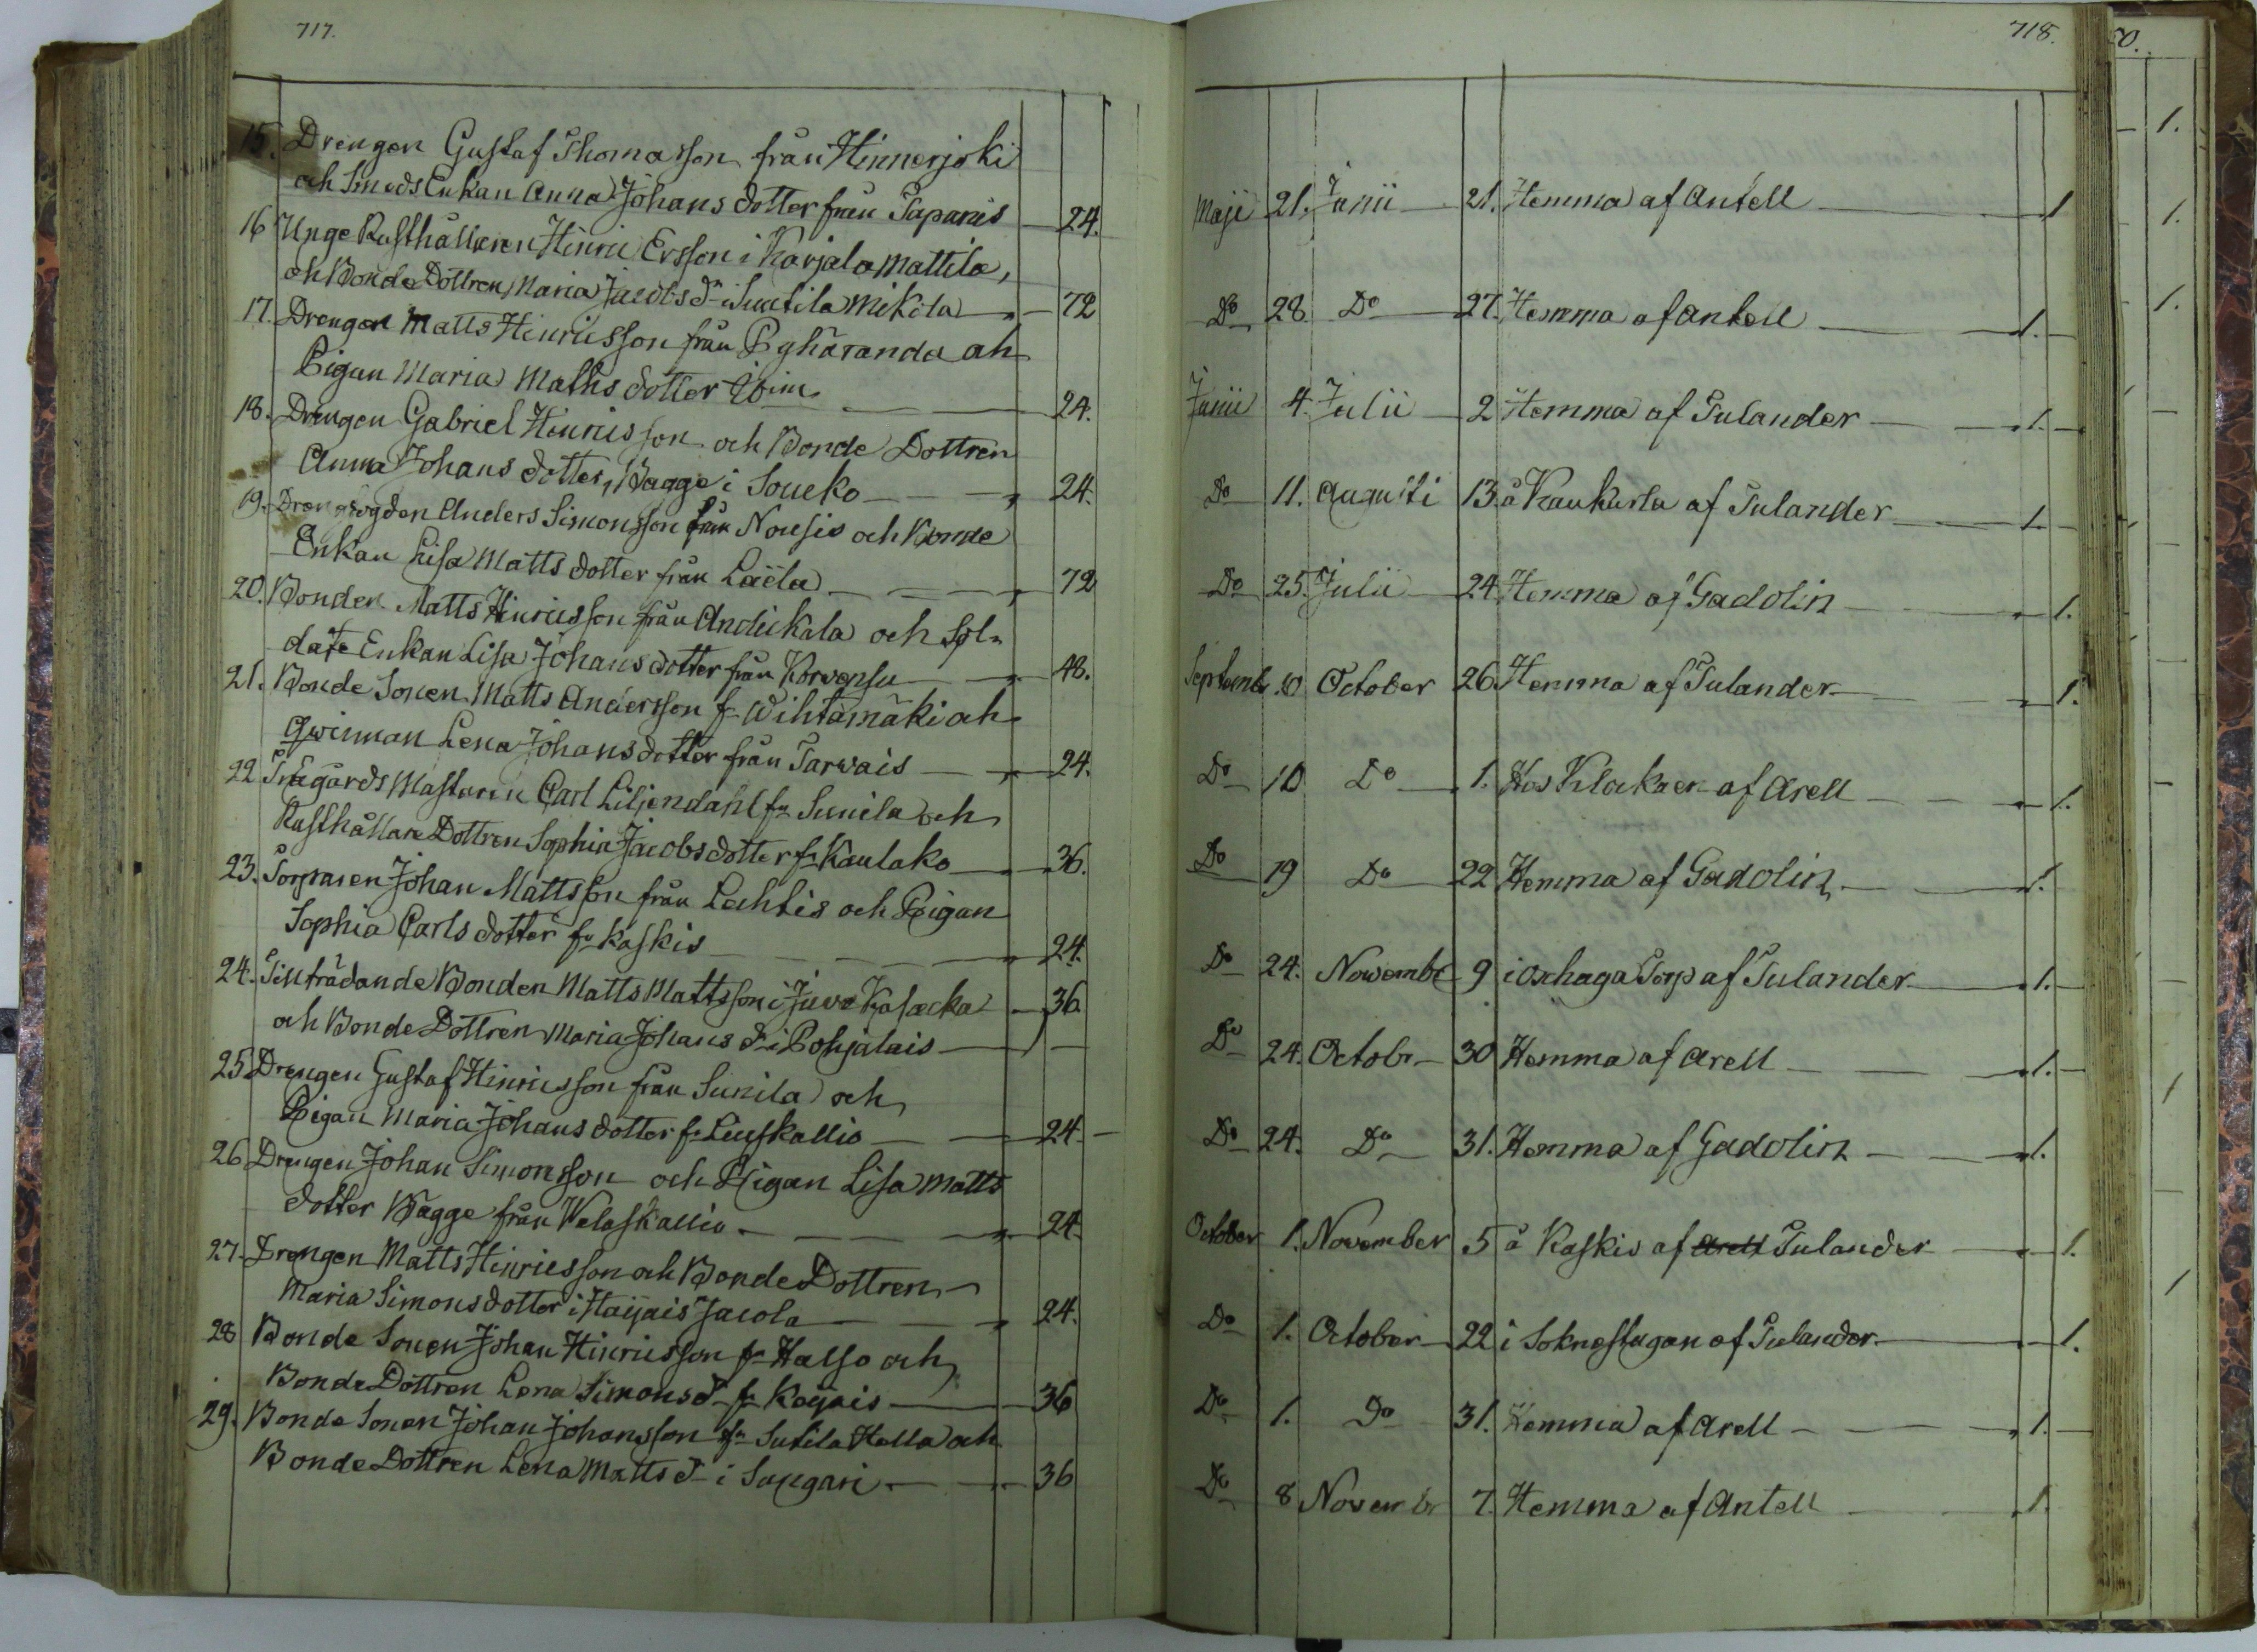 717.
15. Drengen Gustaf Thomasson från Hinnerjoki
och Smeds Enkan Anna Johans dotter från Tapanis 24.
16 Unge Rusthållaren Hinric Ersson i Karjala Mattila,
och Bonde Dottren Maria Jacobs dr i Suutila Mikola 72
17. Drengen Matts Hinricsson från Pyhäranda och
Pigan Maria Matts dotter 24.
18. Drengen Gabriel Hinricsson och Bonde Dottren
Anna Johans dotter, Bagge i Soueko 24.
19. Drengsögden Anders Simonsson från Nousis och Bonde
Enkan Lisa Matts dotter från Laёla 72
20. Bonden Matts Hinricsson från Andickala och Sol-
date Enkan Lisa Johans dotter från Korvensu 48.
21. Bonde Sonen Matts Andersson fr Wihtämäki och
Qwinnan Lena Johans dotter från Tarwais 24.
22 Trägårds Mastaren Carl Liljendahl fr Sunila och
Rusthållare Dottren Sophia Jacobs dotter fr Kaulako 36.
23. Torparen Johan Mattsson från Lahtis och Pigan
Sophia Carls dotter fr Kaskis 24.
24. Tillträdande Bonden Matts Mattsson i Juva Kasacka 36
och Bonde Dottren Maria Johans dr i Pohjalais
25 Drengen Gustaf Hinricsson från Sunila och
Pigan Maria Johans dotter fr Leuskallio 24.
26 Drengen Johan Simonsson och Pigan Lisa Matts
dotter Bagge från Welaskallio 24.
27. Drengen Matts Hinricsson och Bonde Dottren
Maria Simons dotter i Haijais Jacola 24.
28 Bonde Sonen Johan Hinricsson fr Halso och
Bonde Dottren Lena Simons dr fr Keijais 36
29. Bonde Sonen Johan Johansson fr Sutela Hella och
Bonde Dottren Lena Matts dr i Saugari 36
718.
Maji 21. Junii 21. Hemma af Antell 1
Do 28 Do 27. Hemma af Antell 1.
Junii 4. Julii 2 Hemma af Tulander 1.
Do 11. Augusti 13. å Kaukurla af Tulander 1.
Do 25. Julii 24 Hemma af Gadolin 1.
Septemb 10 October 26 Hemma af Tulander 1.
Do 10 Do 1. Hos Klockaren af Arell 1.
Do 19 Do 22 Hemma af Gadolin 1.
Do 24. Novembr 9 i Oxhaga Torp af Tulander 1.
Do 24. Octobr 30 Hemma af Arell 1.
Do 24. Do 31. Hemma af Gadolin 1.
October 1. November 5 å Kaskis af Arell Tulander 1.
Do 1. October 22 i Soknestugan af Tulander 1.
Do 1. Do 31. Hemma af Arell 1.
Do 8 Novembr 7. Hemma af Antell 1.
50.
1.
1.
1.
1
1